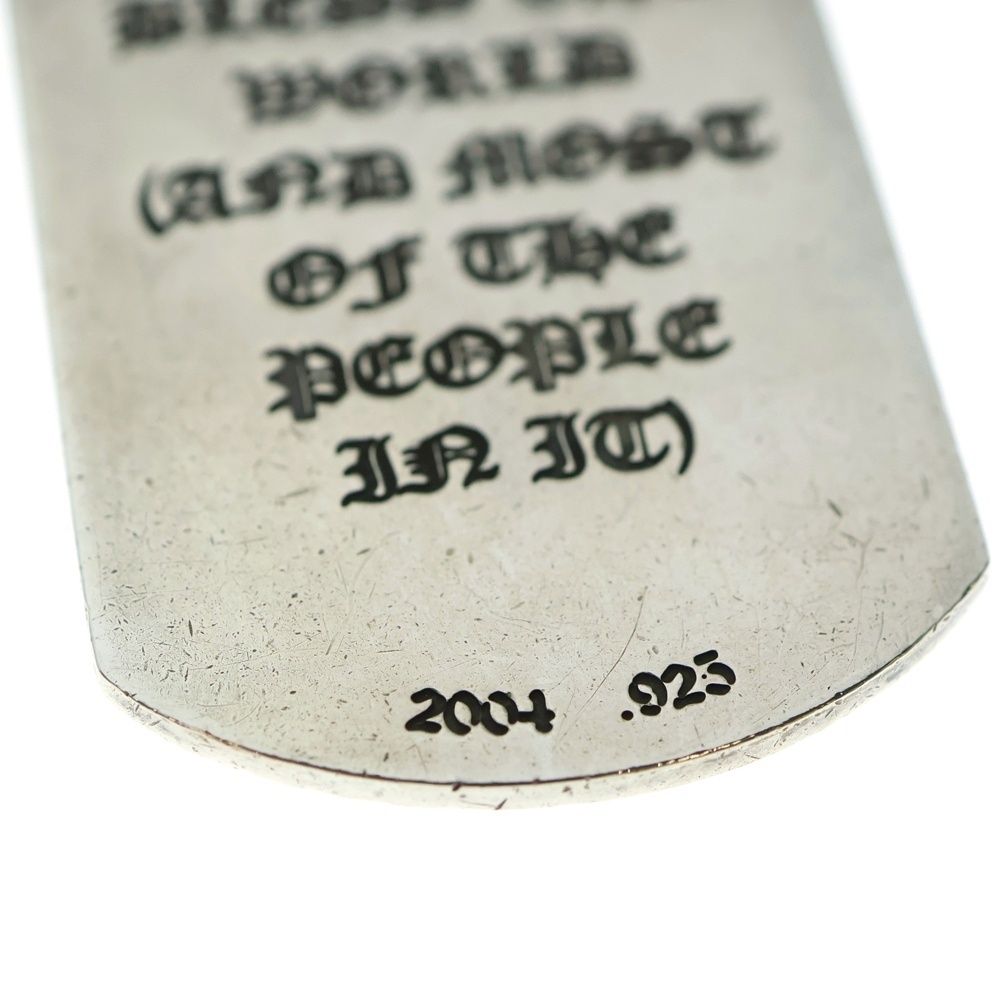 BLESS THE
WORLD
(AND MOST
OF THE
PEOPLE
IN IT)
2004 .925